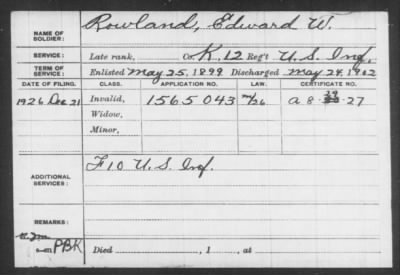 NAME OF SOLDIER: Rowland, Edward W.
SERVICE: Late rank, Co. K, 12 Reg't U.S. Inf.
TERM OF SERVICE: Enlisted May 25, 1899 Discharged May 24, 1902
DATE OF FILING. CLASS. APPLICATION NO. LAW. CERTIFICATE NO.
1926 Dec 21 Invalid, 1565043 /26 a 8-29-27
Widow,
Minor,
ADDITIONAL SERVICES: F 10 U.S. Inf.
REMARKS:
PBK Died , 1 , at